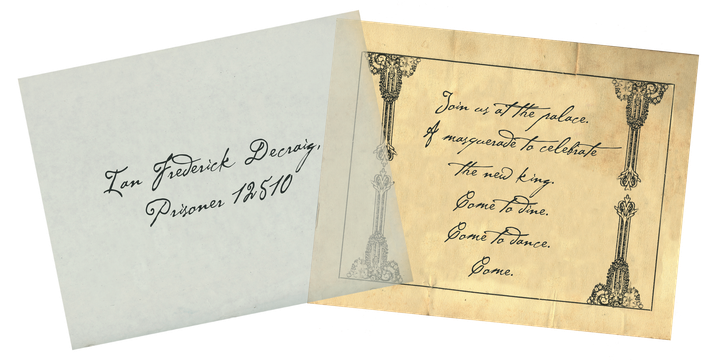 Ian Frederick Decraig,
Prisoner 12510
Join us at the palace.
A masquerade to celebrate
the new king.
Come to dine.
Come to dance.
Come.